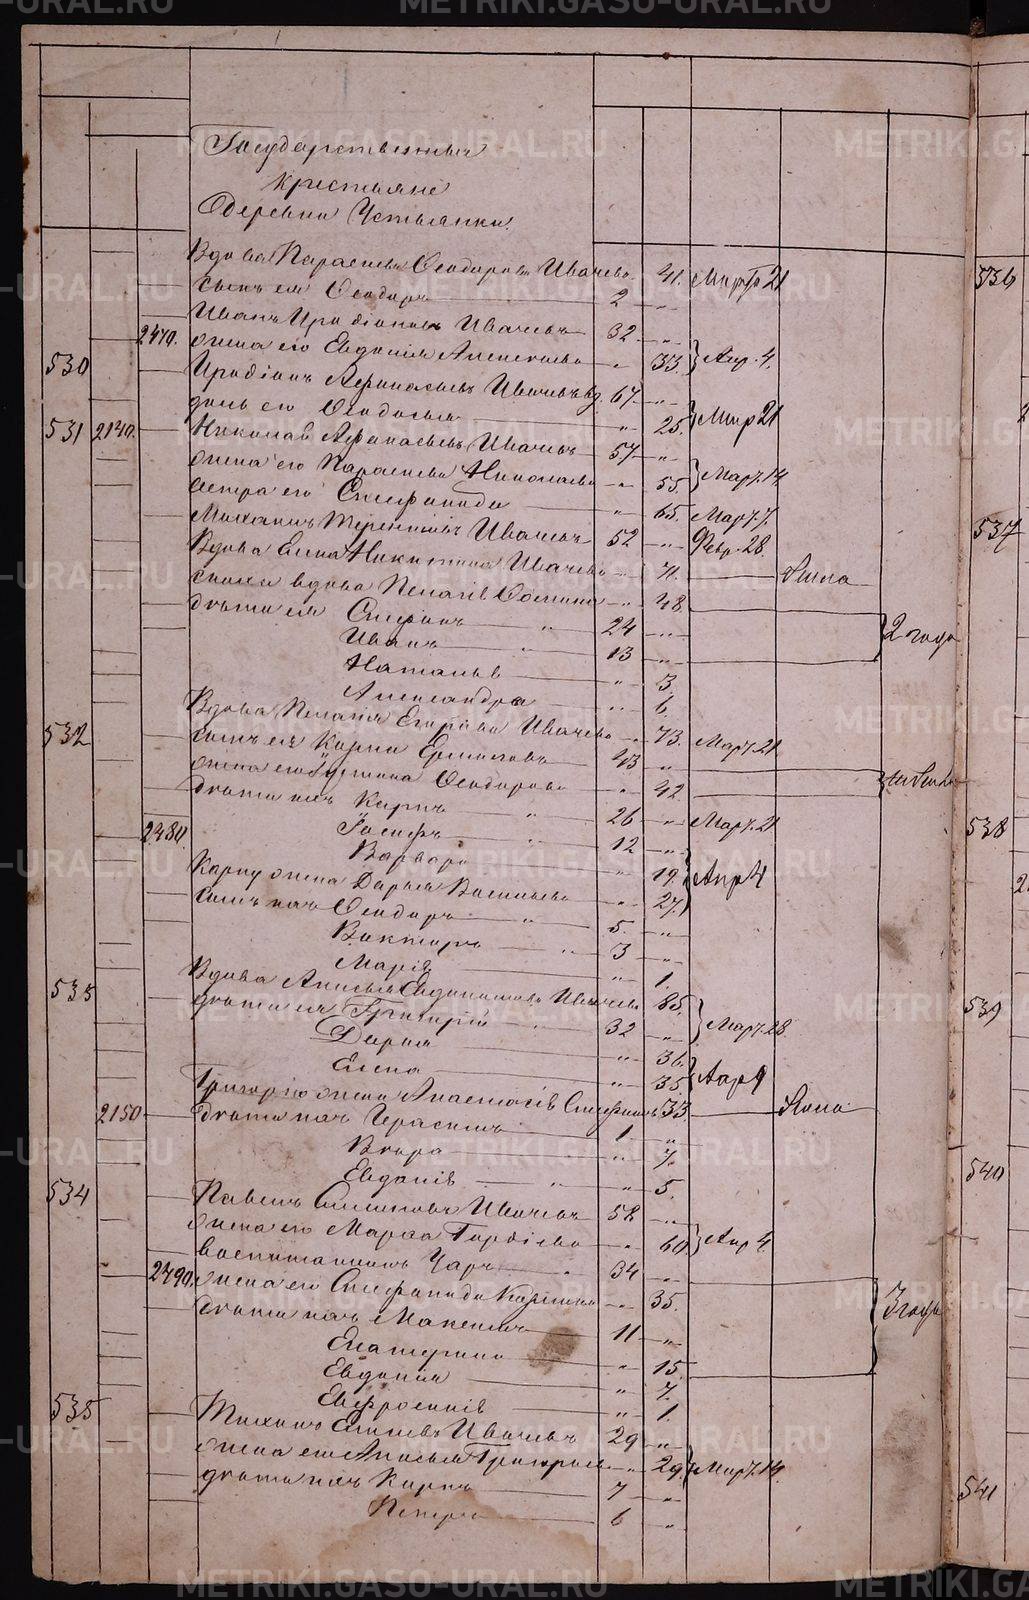 METRIKI.GASO-URAL.RU
Государственныя
крестьяне
Деревни Устьянки.
Вдова Параскева Ѳеодорова Ивачева 41. Март 21
сынъ ея Ѳеодоръ 2 "
Иванъ Иродіоновъ Ивачевъ 32 "
2470. жена его Евдокія Алексеева " 33. Апр. 4.
530 Иродіонъ Афанасьевъ Ивачевъ вд. 67 "
дочь его Ѳеодосья " 25. Мар 21
531 2140. Николай Афанасьевъ Ивачевъ 57 "
жена его Параскева Николаева " 55. Март. 14
сестра его Степанида " 65. Март. 7.
Михаилъ Терентьевъ Ивачевъ 52 " Февр. 28.
Вдова Елена Никитина Ивачева " 71.
сноха вдова Пелагія " 48.
дети ея Стефанъ " 24 " 2 года
Иванъ " 13 "
Наталья " 3.
Александра " 6.
532 Вдова Пелагія Егорова Ивачева " 73. Март. 21
сынъ ея Карпъ 43 "
жена его Устинья Ѳеодорова " 42.
дети ихъ Карпъ " 26 " Март. 21
2480. Іосифъ " 12 "
Варвара " 19. Апр 4
Карпу жена Дарья Васильева " 27.
дети ихъ Ѳеодоръ " 5. "
Викторъ " 3 "
Марія " 1.
533 Вдова Анисья Ивачева 85.
дети ея Григорій " 32 " Март. 28.
Дарья " 36.
Елена " 35 Апр 4
Григорію жена Анастасія 33.
2150 дети ихъ Герасимъ 1. "
Вѣра " 7.
Евдокія " " 5.
534 Павелъ Ивачевъ 58 "
жена его Марѳа Гордѣева " 60. Апр 4
воспитанникъ " 34 "
2490. жена его Стефанида " 35. 3 года
дети ихъ Максимъ 11 "
Екатерина " 15.
Евдокія " 7.
Евфросинія " 1.
535 Тихонъ Ивачевъ 29 "
жена его Анисья Григорьева " 29. Март. 14.
дети ихъ Карпъ 7 "
Петръ 6 "
536
537
538
539
540
541